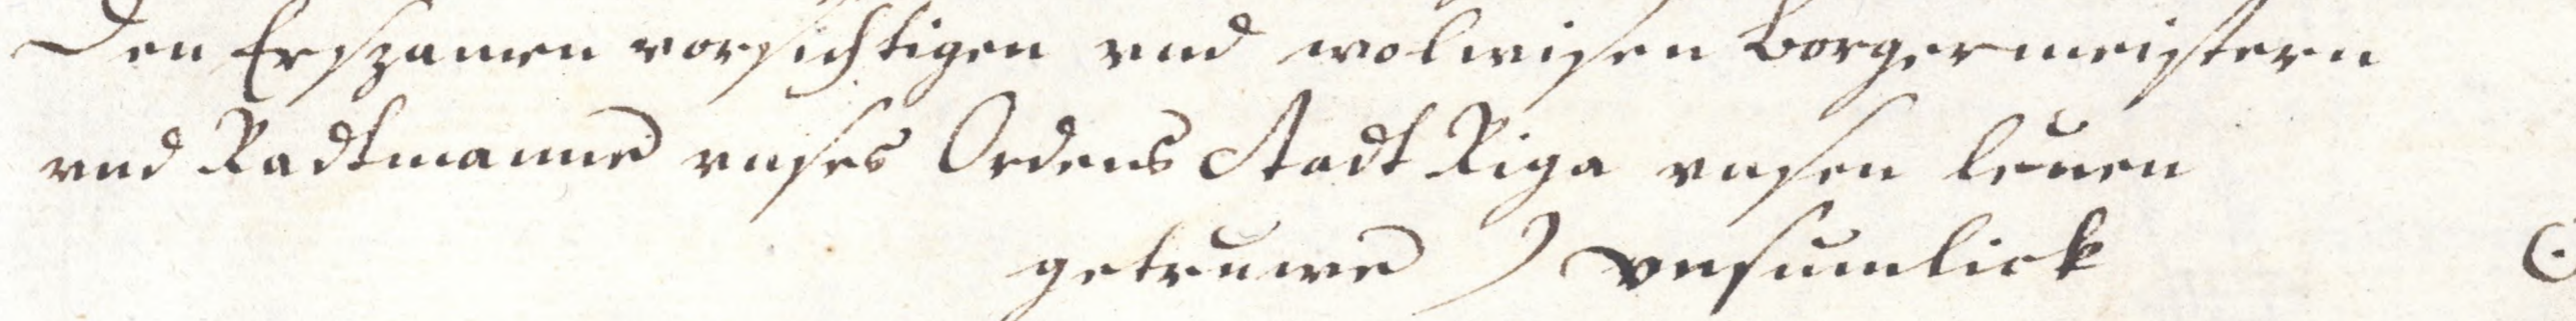 Den Erszamen vorsichtigen vnd wolwisen Borgermeistern
vnd Radtmanne vnses Ordens Stadt Riga vnsen leuen
getruwen) vnsumlick